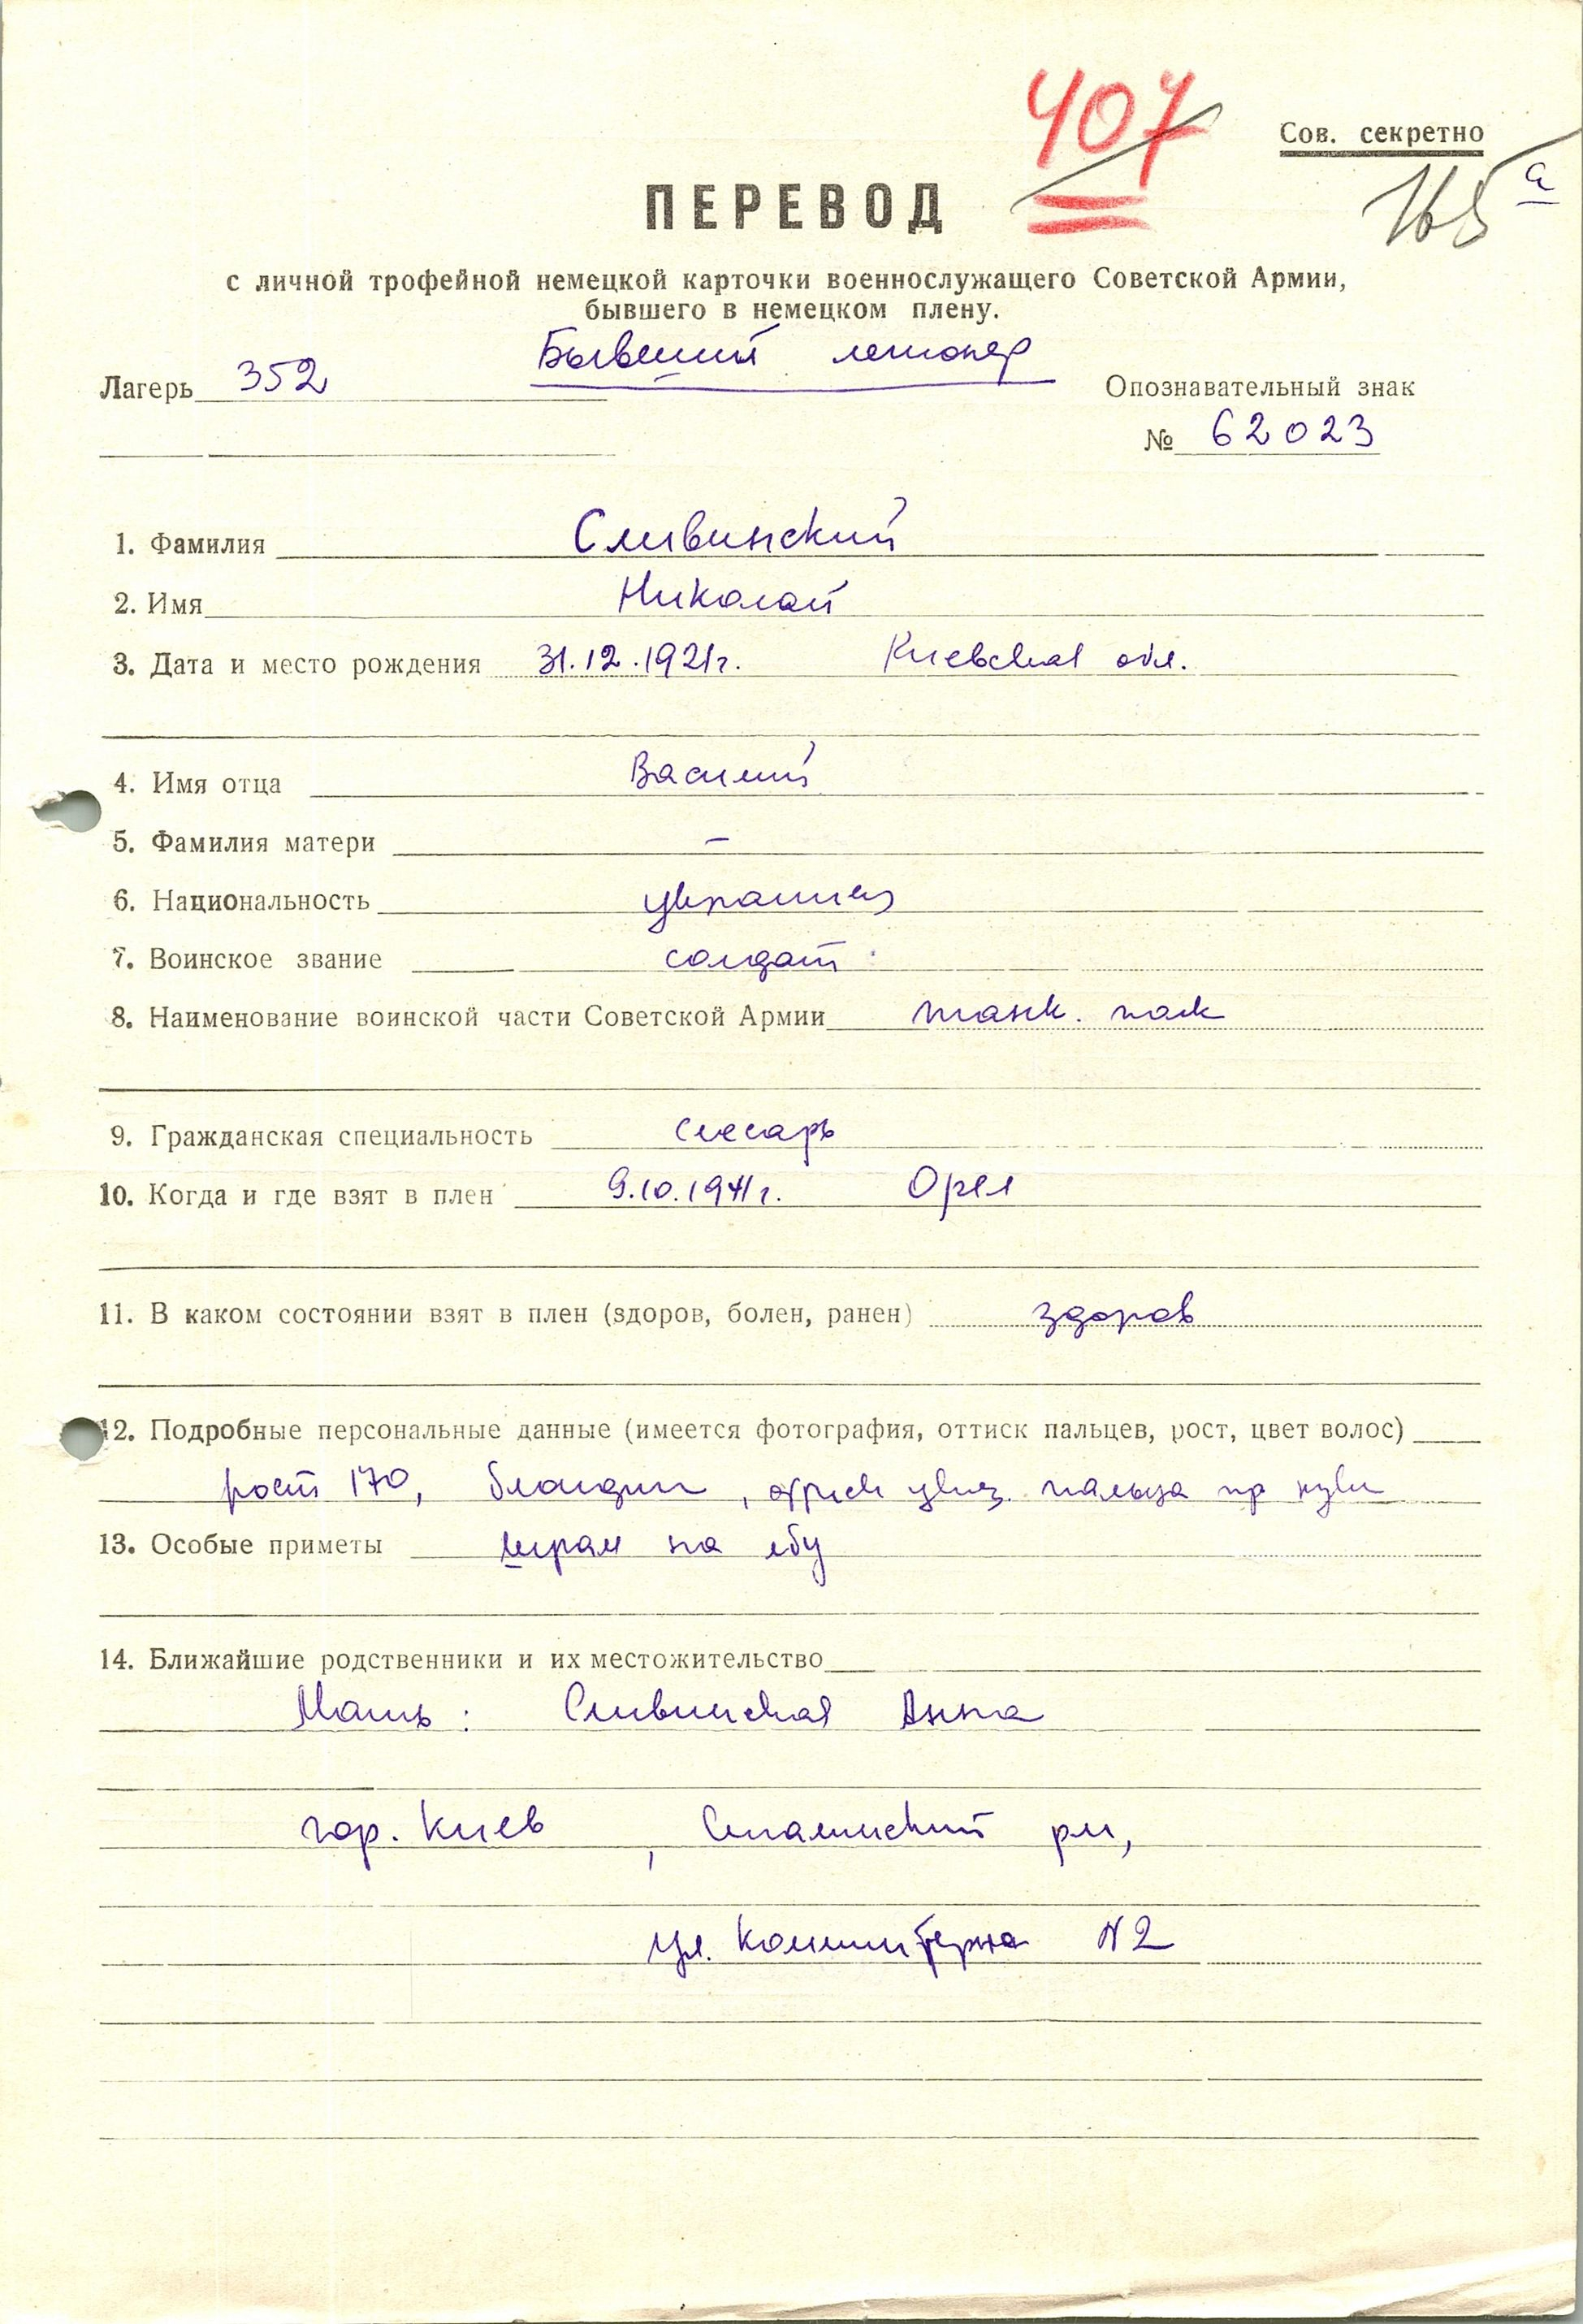 407
Сов. секретно
165 а
ПЕРЕВОД
с личной трофейной немецкой карточки военнослужащего Советской Армии,
бывшего в немецком плену.
Бывший легионер
Лагерь 352
Опознавательный знак
№ 62023
1. Фамилия Сливинский
2. Имя Николай
3. Дата и место рождения 31.12.1921г. Киевская обл.
4. Имя отца Василий
5. Фамилия матери –
6. Национальность украинец
7. Воинское звание солдат
8. Наименование воинской части Советской Армии танк. полк
9. Гражданская специальность слесарь
10. Когда и где взят в плен 9.10.1941г. Орел
11. В каком состоянии взят в плен (здоров, болен, ранен) здоров
12. Подробные персональные данные (имеется фотография, оттиск пальцев, рост, цвет волос)
рост 170, блондин, пальца пр руки
13. Особые приметы шрам на лбу
14. Ближайшие родственники и их местожительство
Мать: Сливинская Анна
гор. Киев, Сталинский рн,
ул. Коминтерна N2